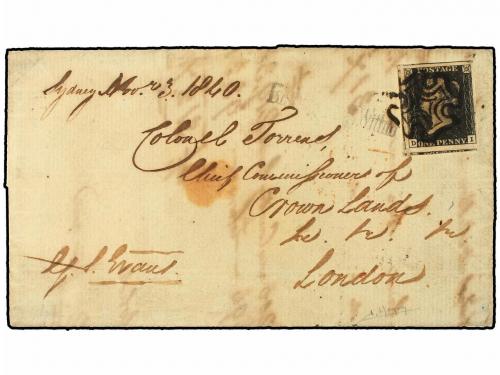 Sydney Nov. 3. 1840.
POSTAGE
D ONE PENNY I
Colonel Torrens
Chief Commissioner of
Crown Lands
&c. &c. &c.
London
Evans